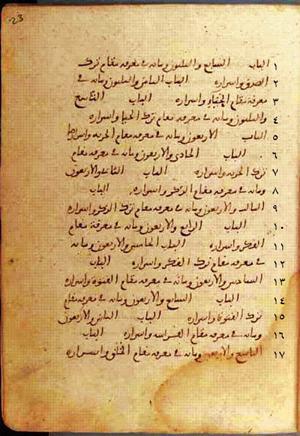 23
١ الباب السابع والثلثون ومائة في معرفة مقام ترك
٢ الصدق واسراره الباب الثامن والثلثون ومائة في
٣ معرفة مقام الحياء واسراره الباب التاسع
٤ والثلثون ومائة في معرفة مقام ترك الحياء واسراره
٥ الباب الاربعون ومائة في معرفة مقام الحرية واسرارها
٦ الباب الحادي والاربعون ومائة في معرفة مقام
٧ ترك الحرية واسراره الباب الثاني والاربعون
٨ ومائة في معرفة مقام الذكر واسراره الباب
٩ الثالث والاربعون ومائة في معرفة مقام ترك الذكر واسراره
١٠ الباب الرابع والاربعون ومائة في معرفة مقام
١١ الفكر واسراره الباب الخامس والاربعون ومائة
١٢ في معرفة مقام ترك الفكر واسراره الباب
١٣ السادس والاربعون ومائة في معرفة مقام الفتوة واسراره
١٤ الباب السابع والاربعون ومائة في معرفة مقام
١٥ ترك الفتوة واسراره الباب الثامن والاربعون
١٦ ومائة في معرفة مقام الفراسة واسراره الباب
١٧ التاسع والاربعون ومائة في معرفة مقام الخلق واسراره